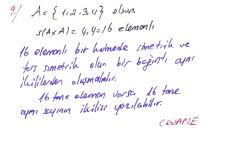 9/ A = {1,2,3,4} olsun
s(AxA) = 4.4=16 elemanlı
16 elemanlı bir kümede simetrik ve
ters simetrik olan bir bağıntı aynı
ikililerden oluşmalıdır.
16 tane eleman varsa 16 tane
aynı sayının ikilisi yazılabilir.
CEVAP: E